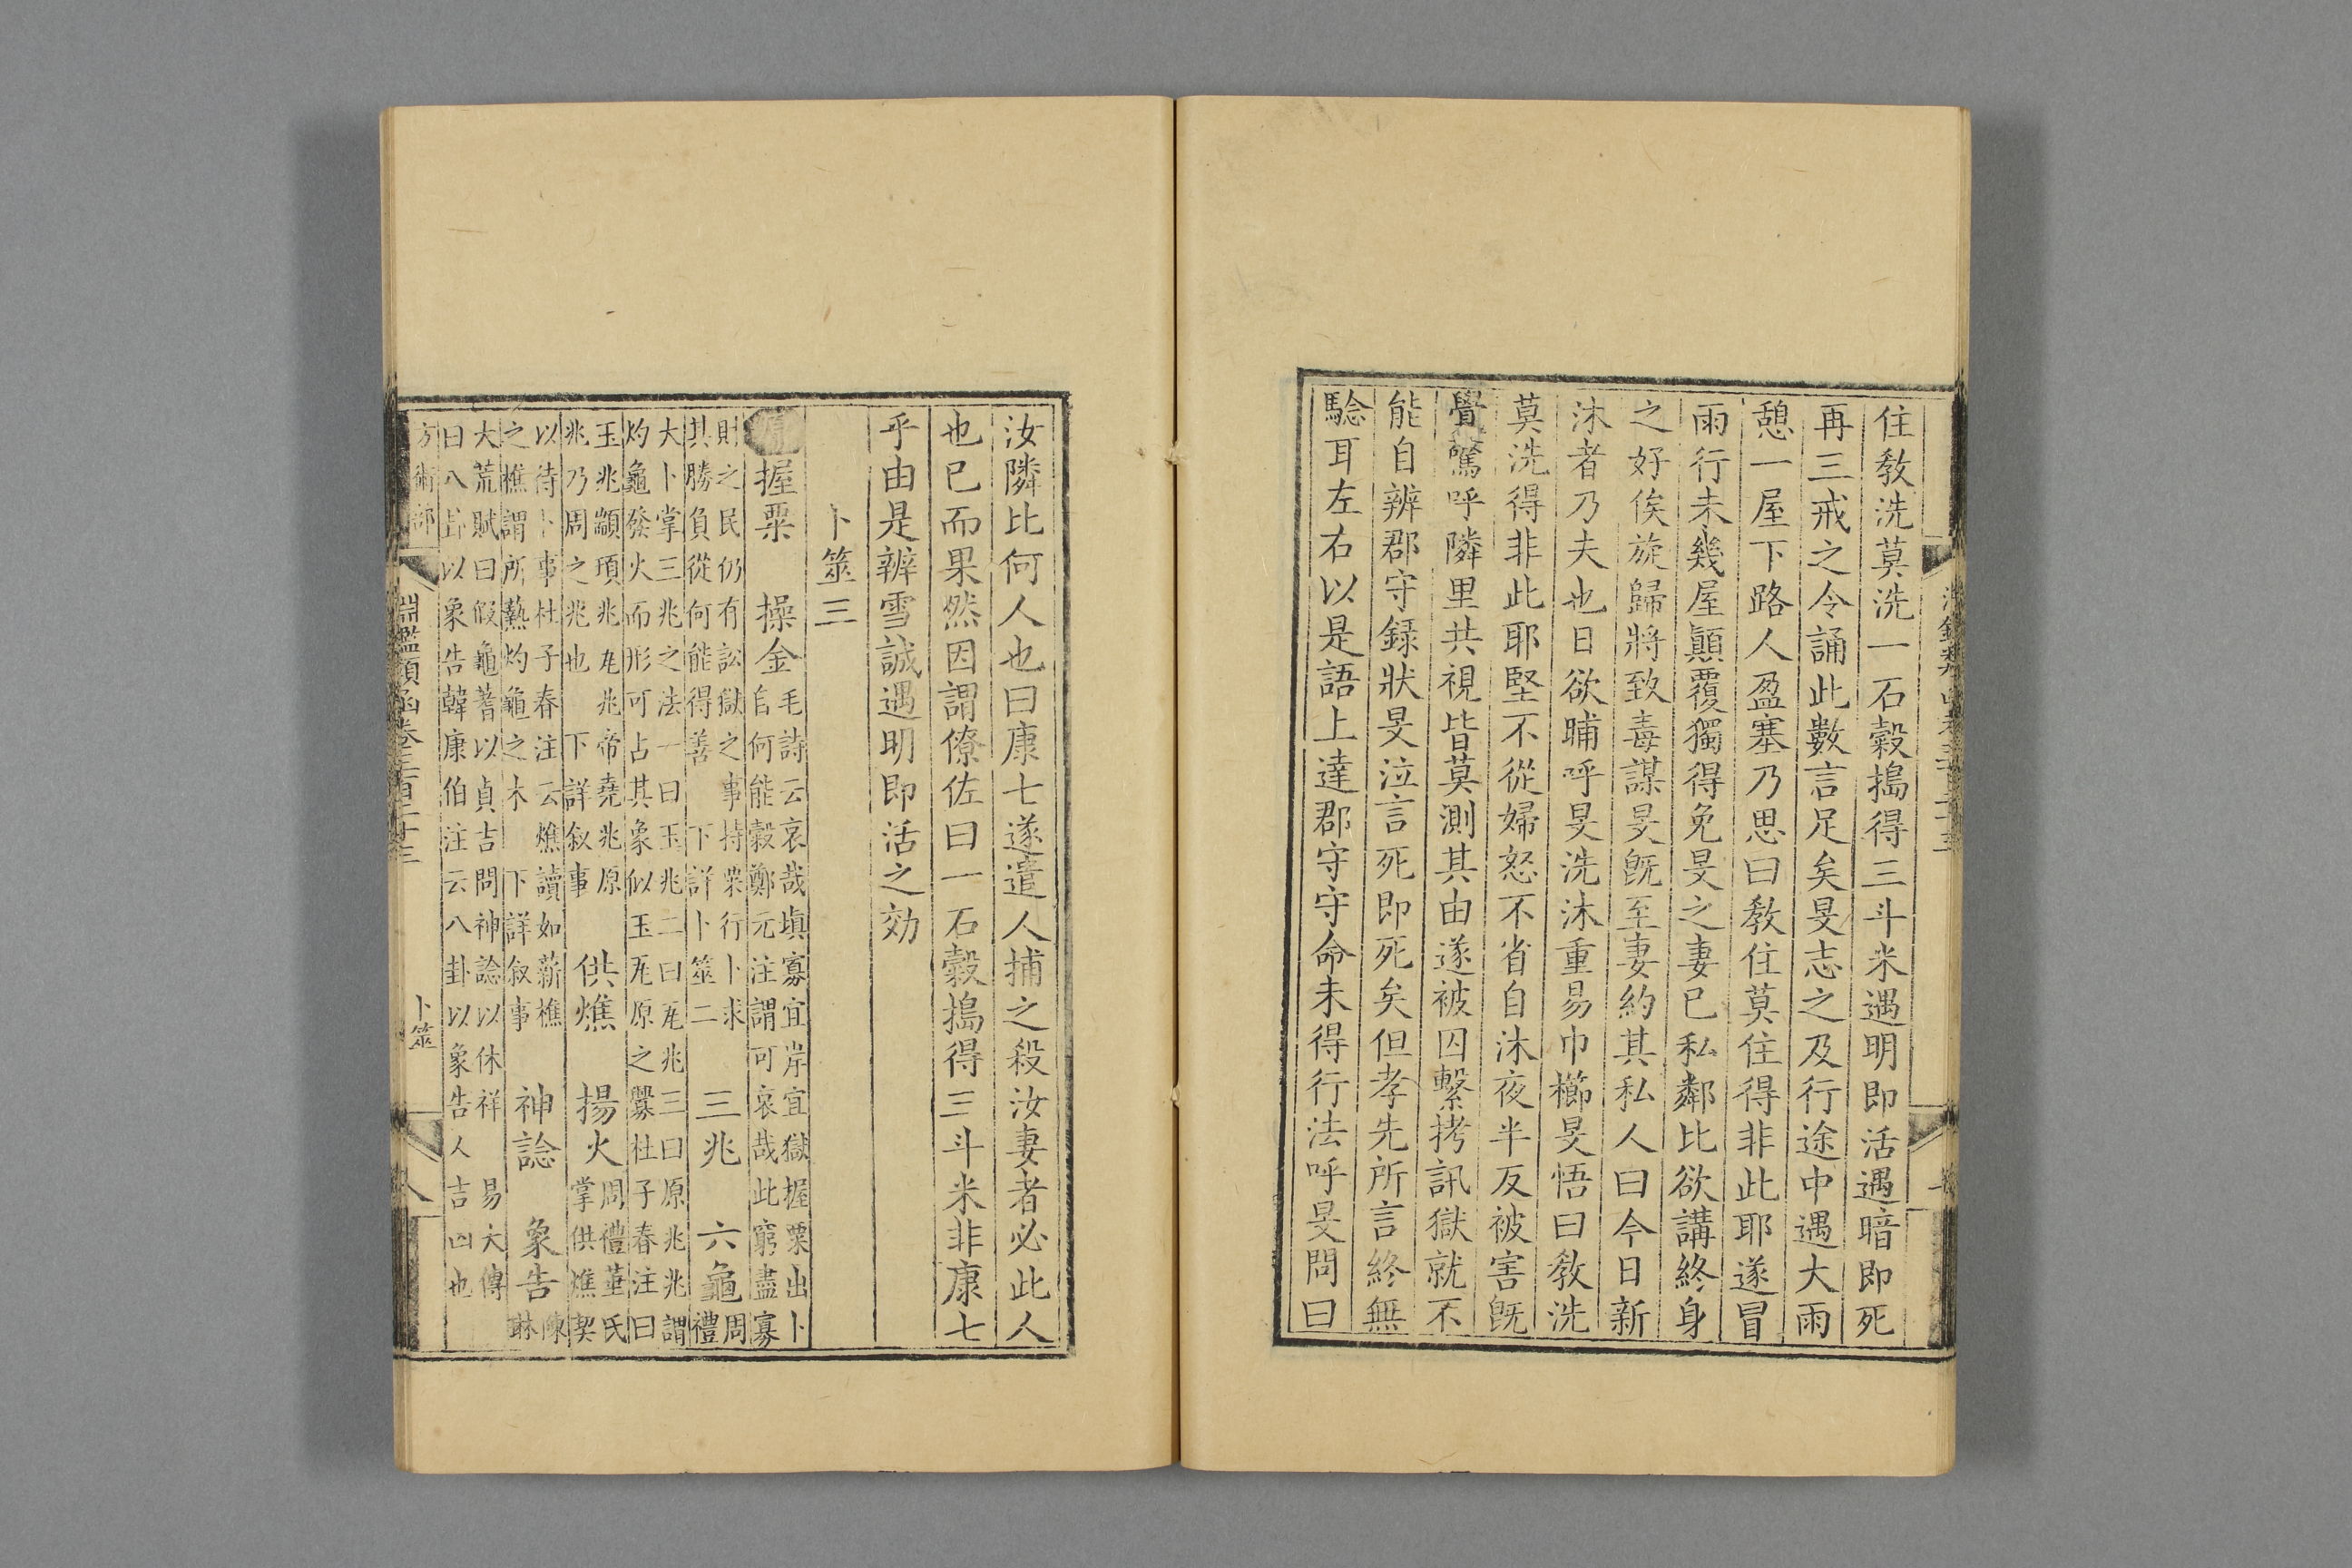 住教洗莫洗一石穀搗得三斗米遇明即活遇暗即死
再三戒之令誦此數言足矣旻志之及行途中遇大雨
憩一屋下路人盈塞乃思曰教住莫住得非此耶遂冒
雨行未幾屋顛覆獨得免旻之妻已私鄰比欲講終身
之好俟旋歸將致毒謀旻旣至妻約其私人曰今日新
沐者乃夫也日欲晡呼旻洗沐重易巾櫛旻悟曰教洗
莫洗得非此耶堅不從婦怒不省自沐夜半反被害旣
覺驚呼隣里共視皆莫測其由遂被囚繫拷訊獄就不
能自辨郡守録狀旻泣言死即死矣但孝先所言終無
驗耳左右以是語上達郡守守命未得行法呼旻問曰
汝隣比何人也曰康七遂遣人捕之殺汝妻者必此人
也已而果然因謂僚佐曰一石穀搗得三斗米非康七
乎由是辨雪誠遇明即活之効
卜筮三
原握粟 操金毛詩云哀哉塡寡宜岸宜獄握粟出卜
自何能穀鄭元注謂可哀哉此窮盡寡
財之民仍有訟獄之事持粟行卜求
其勝負從何能得善 下詳卜筮二 三兆 六龜周
禮
大卜掌三兆之法一曰玉兆二曰瓦兆三曰原兆兆謂
灼龜發火而形可占其象似玉瓦原之釁杜子春注曰
玉兆顓頊兆瓦兆帝堯兆原
兆乃周之兆也 下詳敘事 供燋 揚火周禮菙氏
掌供燋契
以待卜事杜子春注云燋讀如薪樵
之樵謂所爇灼龜之木 下詳敘事 神諗 象告陳
琳
大荒賦曰假龜蓍以貞吉問神諗以休祥 易大傳
曰八卦以象告韓康伯注云八卦以象告人吉凶也
方術部
淵鑑類函卷三百二十三
卜筮
八